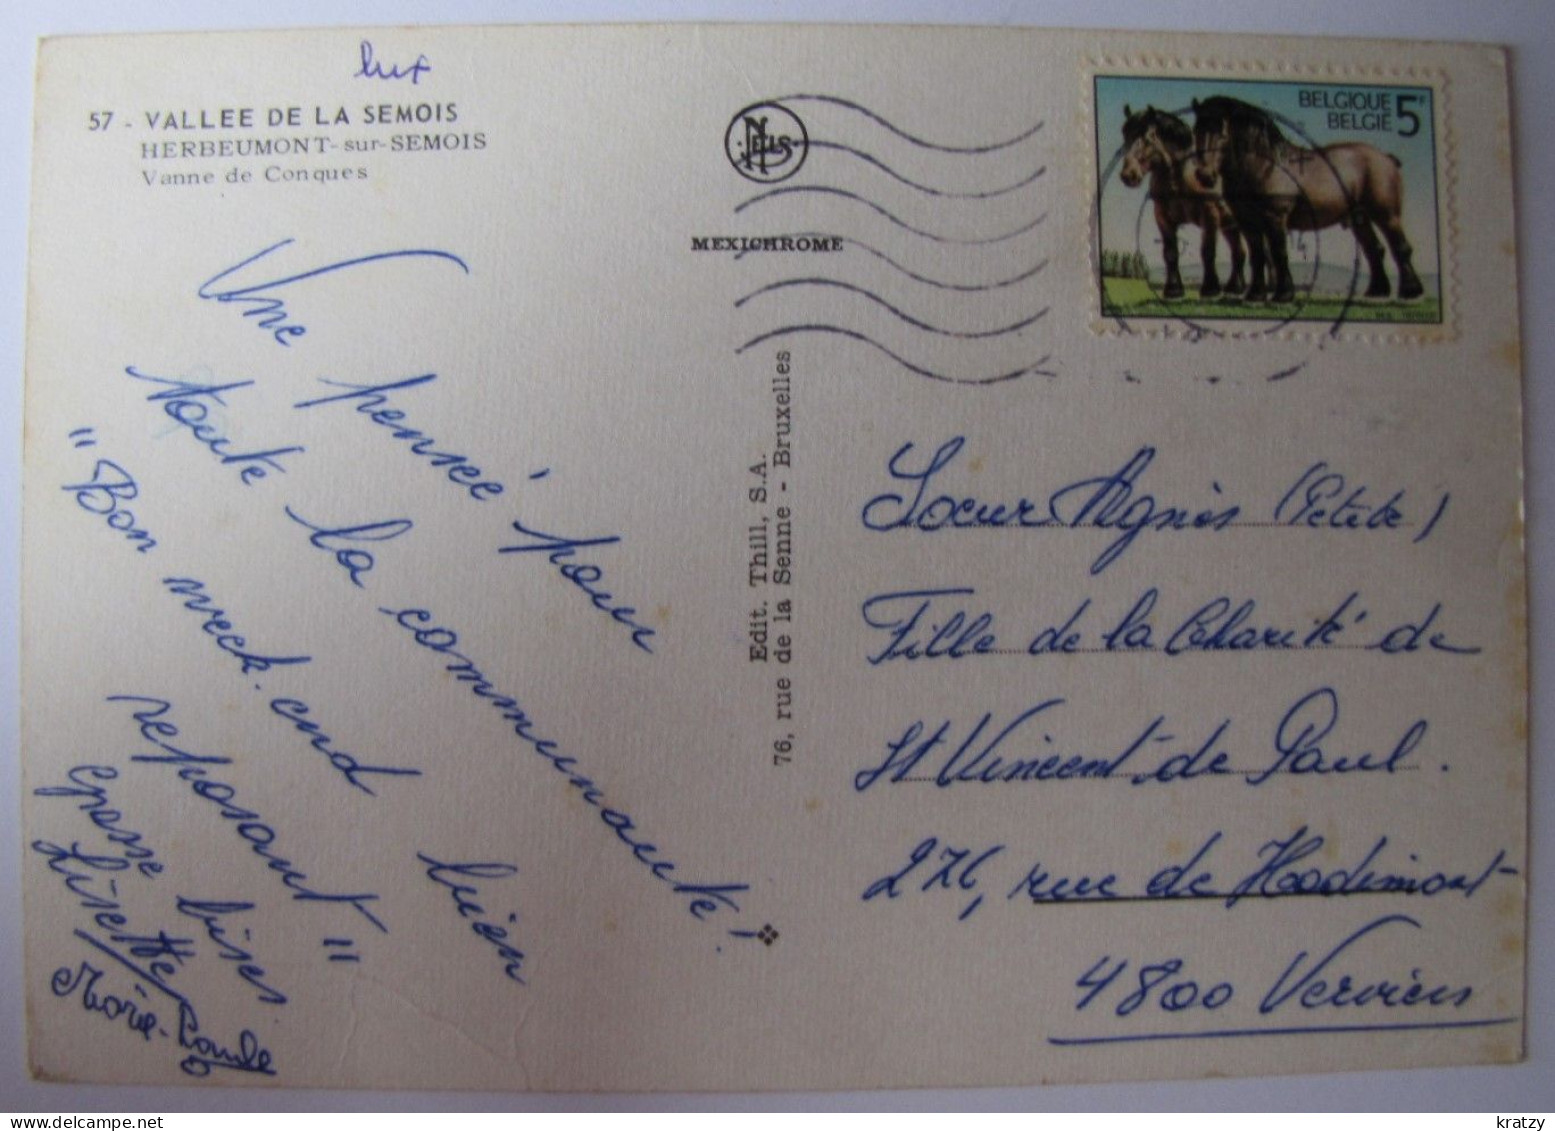 lux
57 - VALLEE DE LA SEMOIS
HERBEUMONT-sur-SEMOIS
Vanne de Conques
NELS
MEXICHROME
BELGIQUE 5F
BELGIË
Une pensée pour
toute la communauté!
"Bon week-end bien
reposant"
grosse bises
Lisette
Marie-Paule
Edit. Thill, S.A.
76, rue de la Senne - Bruxelles
Soeur Agnès (Petite)
Fille de la Charité de
St Vincent de Paul.
276, rue de Hodimont
4800 Verviers
© www.delcampe.net
kratzy